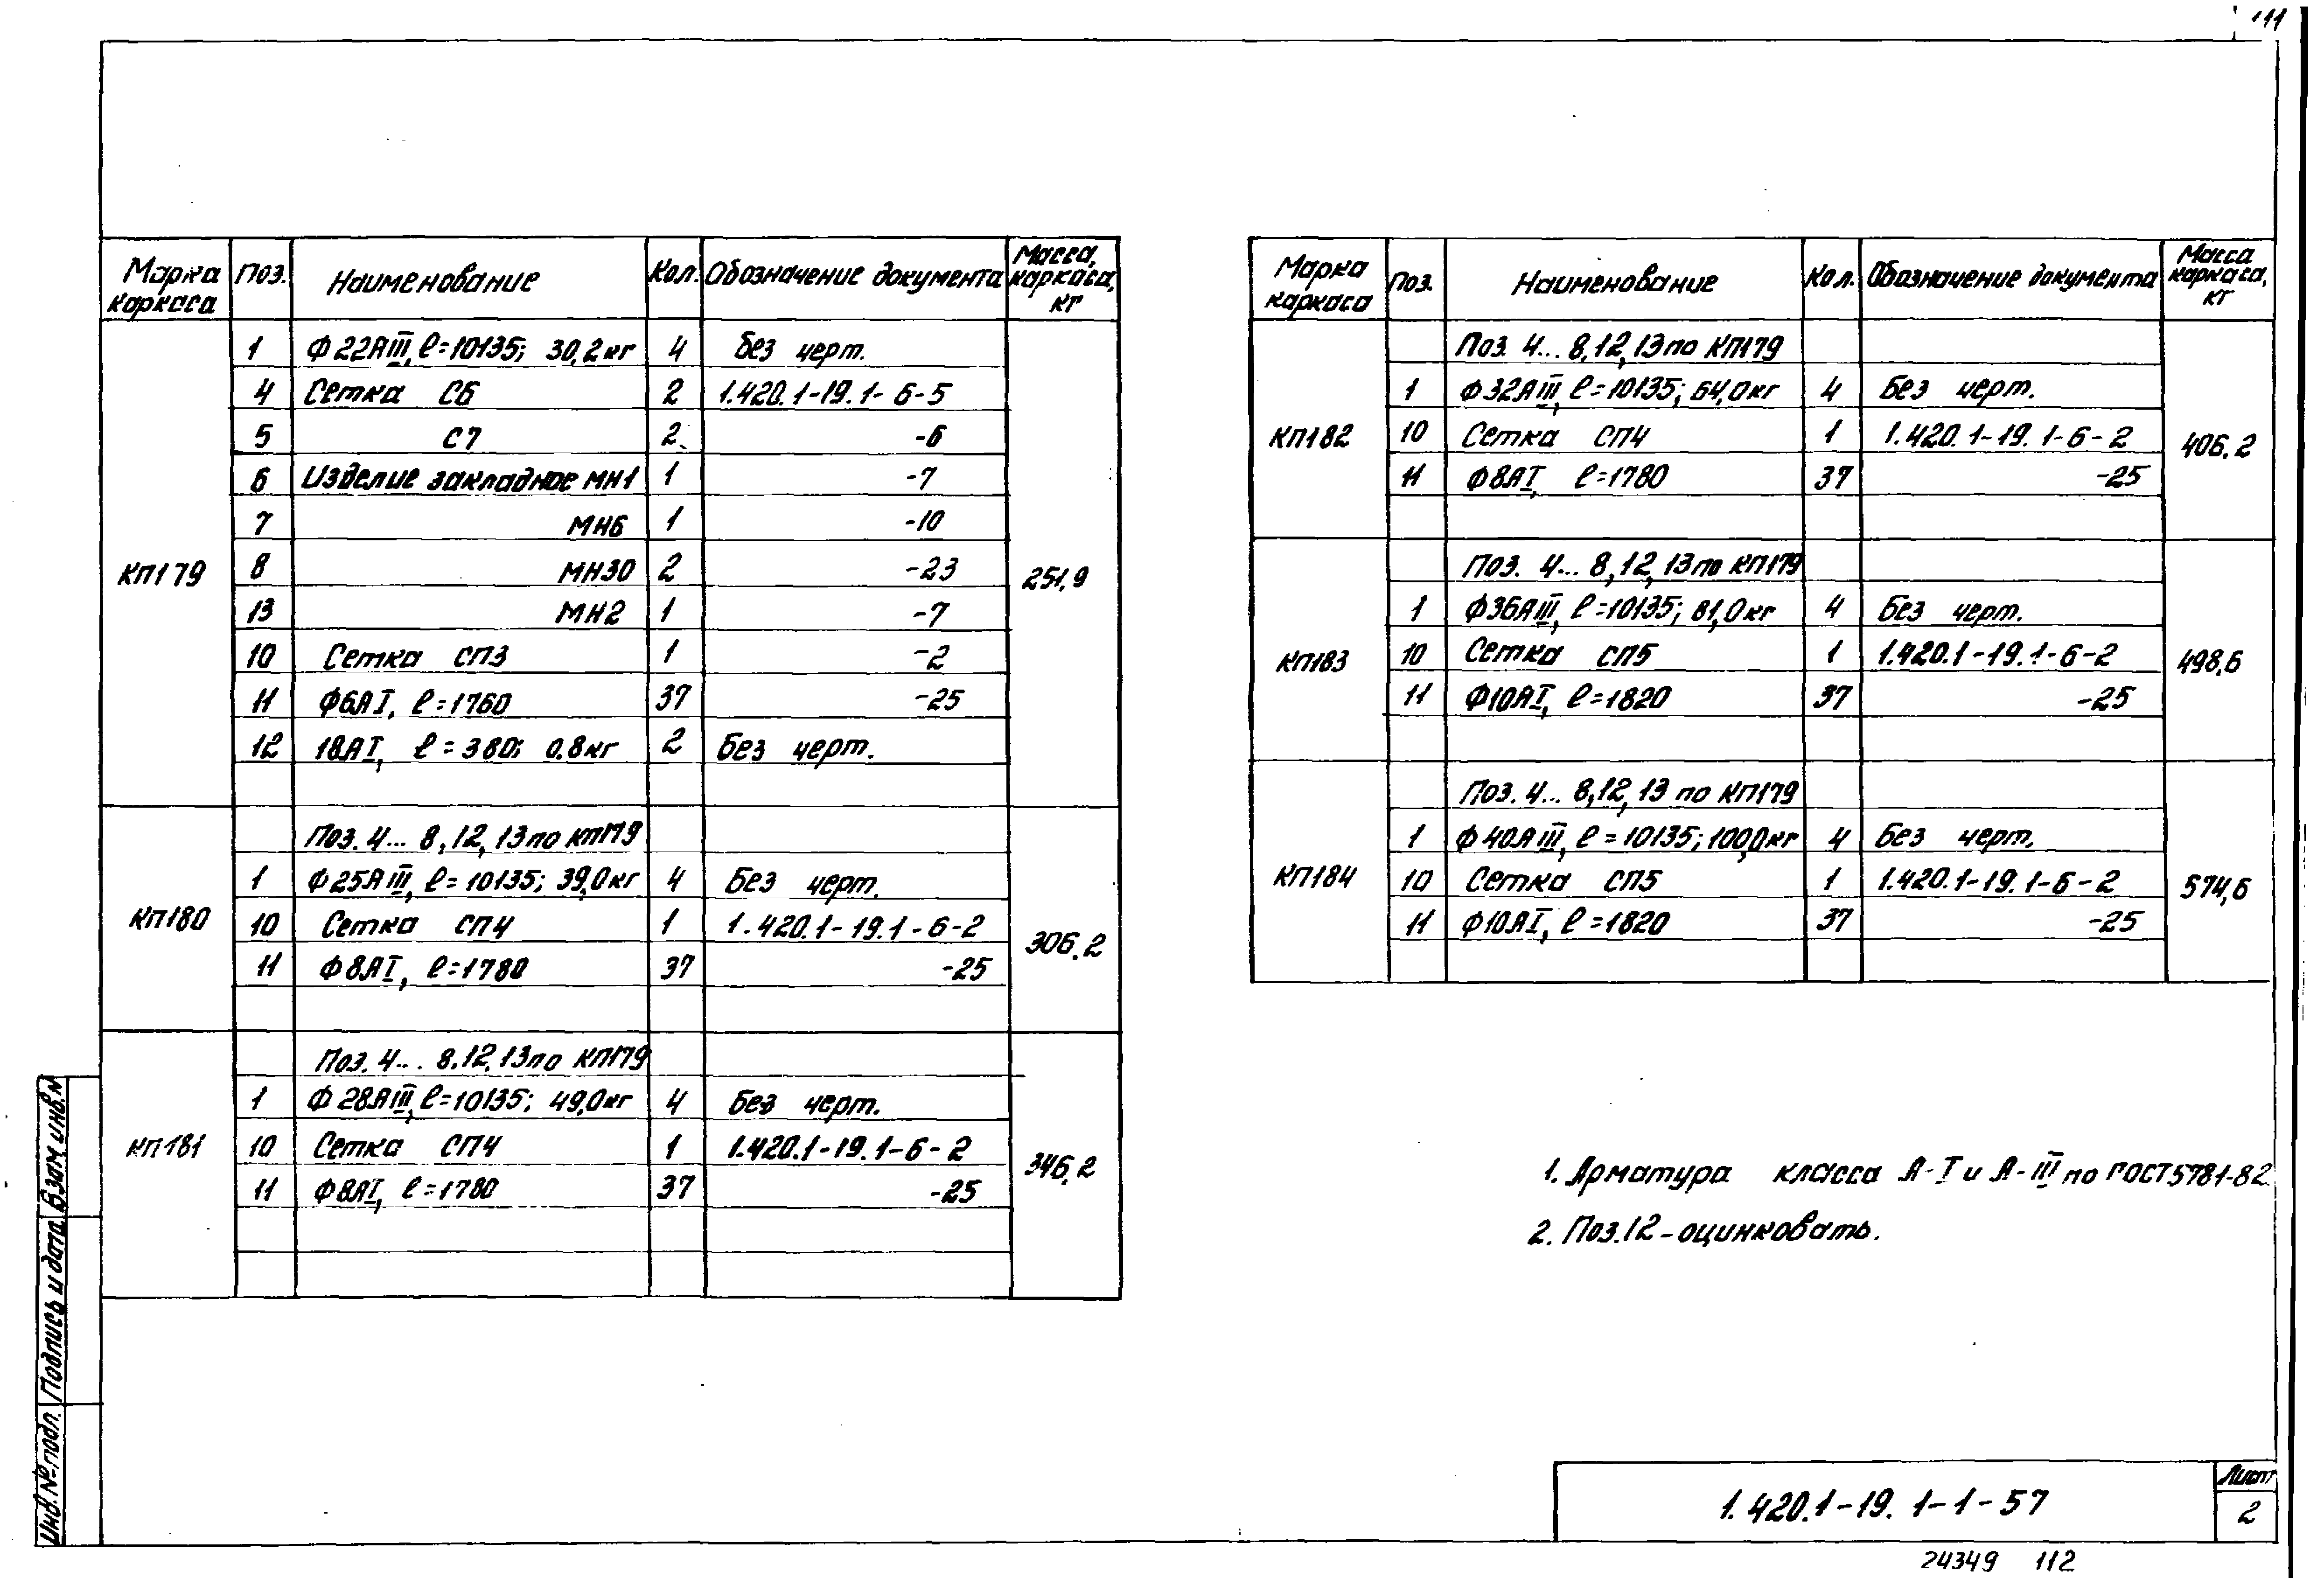 111
Марка каркаса Поз. Наименование Кол. Обозначение документа Масса, каркаса, кг
КП179 251,9
1 Ф22АIII, l=10135; 30,2кг 4 Без черт.
4 Сетка С6 2 1.420.1-19.1-6-5
5 С7 2 -6
6 Изделие закладное МН1 1 -7
7 МН6 1 -10
8 МН30 2 -23
13 МН2 1 -7
10 Сетка СП3 1 -2
11 Ф6АI, l=1760 37 -25
12 18АI, l=380; 0.8кг 2 Без черт.
КП180 306.2
Поз. 4... 8, 12, 13 по КП179
1 Ф25АIII, l=10135; 39,0кг 4 Без черт.
10 Сетка СП4 1 1.420.1-19.1-6-2
11 Ф8АI, l=1780 37 -25
КП181 346.2
Поз. 4... 8.12.13 по КП179
1 Ф28АIII, l=10135; 49,0кг 4 Без черт.
10 Сетка СП4 1 1.420.1-19.1-6-2
11 Ф8АI, l=1780 37 -25
Марка каркаса Поз. Наименование Кол. Обозначение документа Масса каркаса, кг
КП182 406.2
Поз. 4... 8,12,13 по КП179
1 Ф32АIII, l=10135; 64,0кг 4 Без черт.
10 Сетка СП4 1 1.420.1-19.1-6-2
11 Ф8АI, l=1780 37 -25
КП183 498,6
Поз. 4... 8,12,13 по КП179
1 Ф36АIII, l=10135; 81,0кг 4 Без черт.
10 Сетка СП5 1 1.420.1-19.1-6-2
11 Ф10АI, l=1820 37 -25
КП184 574,6
Поз. 4... 8,12,13 по КП179
1 Ф40АIII, l=10135; 100,0кг 4 Без черт.
10 Сетка СП5 1 1.420.1-19.1-6-2
11 Ф10АI, l=1820 37 -25
1. Арматура класса А-I и А-III по ГОСТ5781-82
2. Поз.12-оцинковать.
Инв.№подл. Подпись и дата Взам инв.N
1.420.1-19. 1-1-57
Лист
2
24349 112